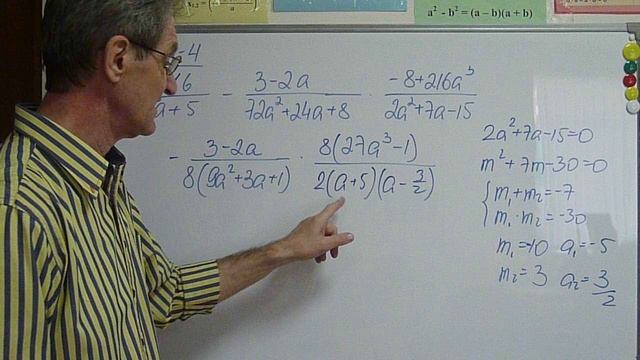 a² - b² = (a – b)(a + b)
-4
16
a+5
- 3-2a / 72a²+24a+8
-8+216a³ / 2a²+7a-15
- 3-2a / 8(9a²+3a+1) · 8(27a³-1) / 2(a+5)(a-3/2)
2a²+7a-15=0
m²+7m-30=0
{ m₁+m₂=-7
m₁·m₂=-30
m₁=-10 a₁=-5
m₂=3 a₂=3/2